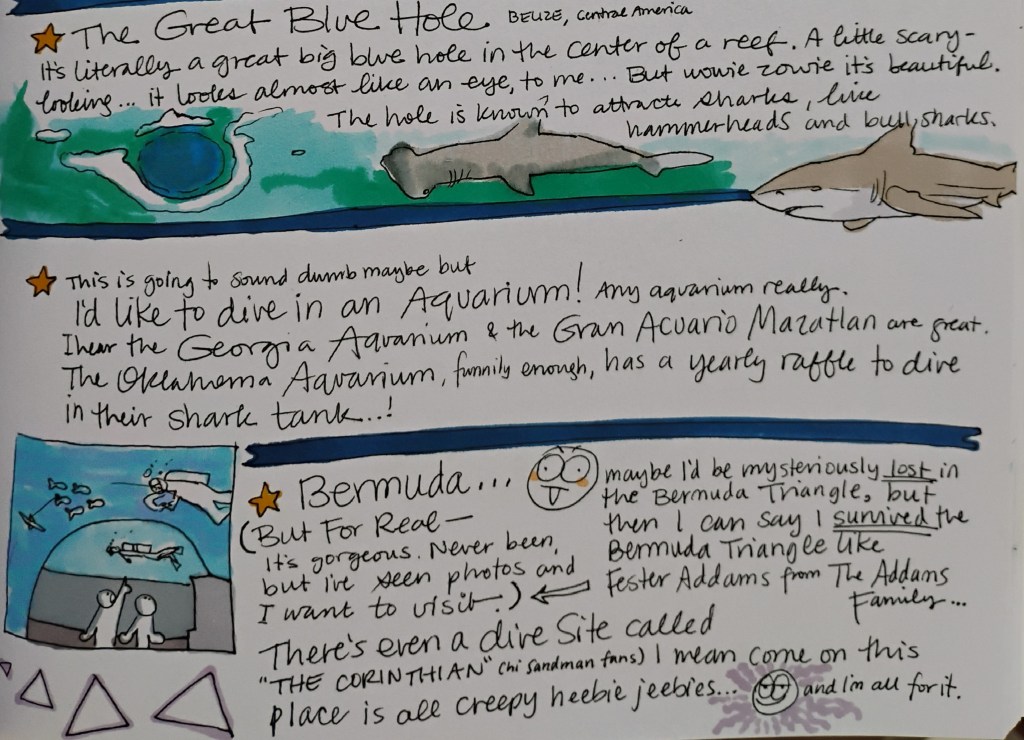 The Great Blue Hole BELIZE, Central America
It's literally a great big blue hole in the center of a reef. A little scary-
looking... it looks almost like an eye, to me... But wowie zowie it's beautiful.
The hole is known to attract sharks, like
hammerheads and bull sharks.
This is going to sound dumb maybe but
I'd like to dive in an Aquarium! Any aquarium really.
I hear the Georgia Aquarium & the Gran Acuario Mazatlan are great.
The Oklahoma Aquarium, funnily enough, has a yearly raffle to dive
in their shark tank...!
Bermuda...
(But For Real—
It's gorgeous. Never been,
but I've seen photos and
I want to visit!)
maybe I'd be mysteriously lost in
the Bermuda Triangle, but
then I can say I survived the
Bermuda Triangle like
Fester Addams from The Addams
Family...
There's even a dive site called
"THE CORINTHIAN" (hi Sandman fans) I mean come on this
place is all creepy heebie jeebies... and I'm all for it.